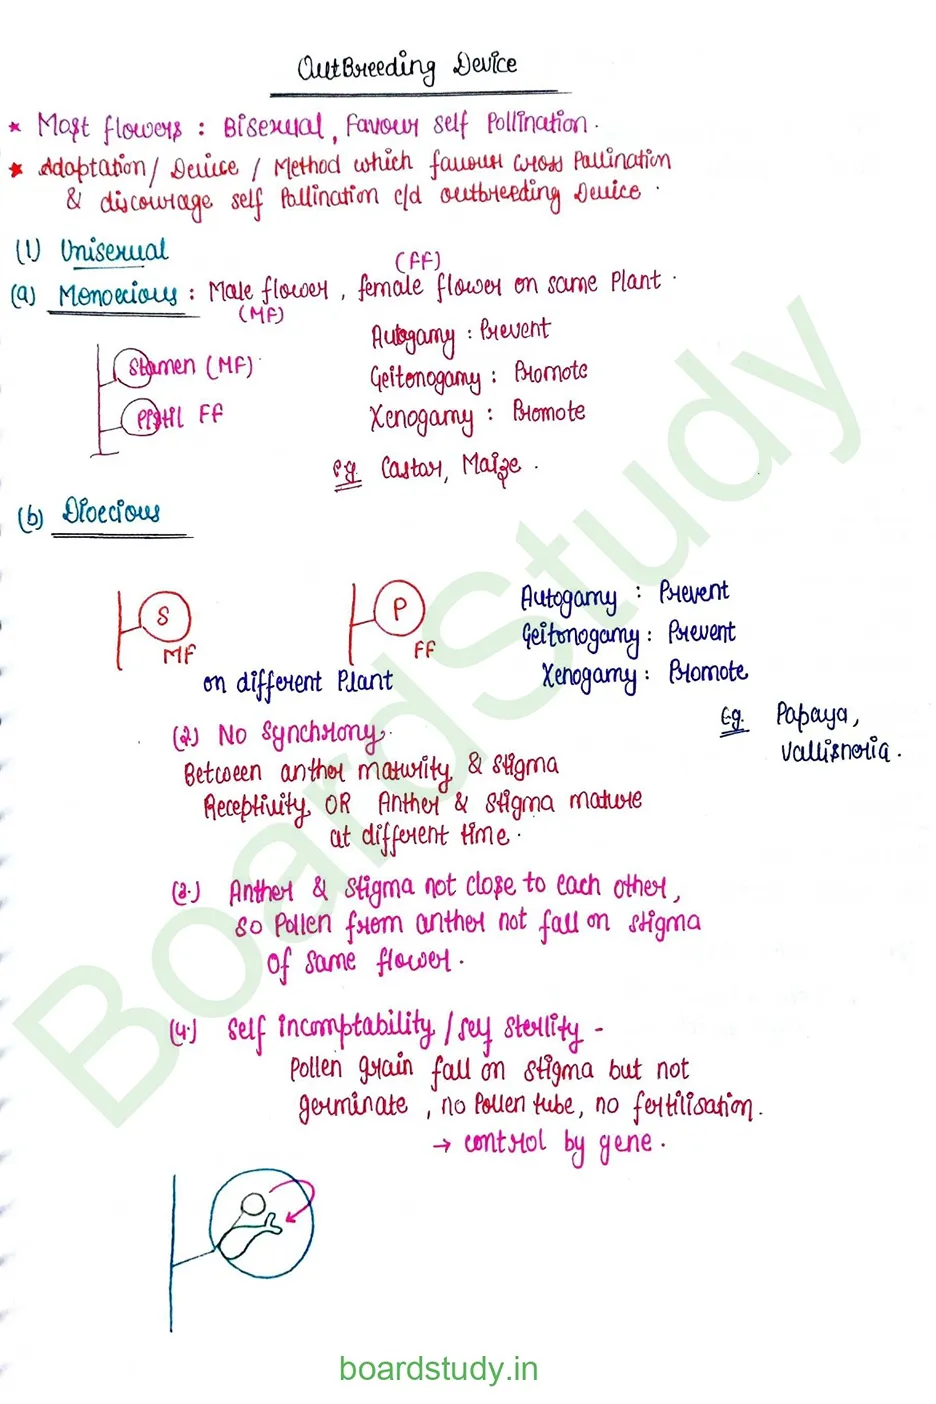 OutBreeding Device
* Most flowers : Bisexual, Favour self Pollination.
* Adaptation / Device / Method which favour cross Pollination
& discourage self Pollination c/d outbreeding Device.
(1) Unisexual
(FF)
(a) Monoecious : Male flower, female flower on same Plant.
(MF)
Autogamy : Prevent
Stamen (MF)
Geitonogamy : Promote
Pistil FF
Xenogamy : Promote
e.g. Castor, Maize.
(b) Dioecious
S
MF
P
FF
on different Plant
Autogamy : Prevent
Geitonogamy : Prevent
Xenogamy : Promote
E.g. Papaya,
Vallisneria.
(2) No Synchrony.
Between anther maturity & stigma
Receptivity OR Anther & stigma mature
at different time.
(3.) Anther & stigma not close to each other,
so Pollen from anther not fall on stigma
of same flower.
(4.) Self incomptability / sey sterlity -
Pollen grain fall on stigma but not
germinate, no Pollen tube, no fertilisation.
→ control by gene.
BoardStudy
boardstudy.in